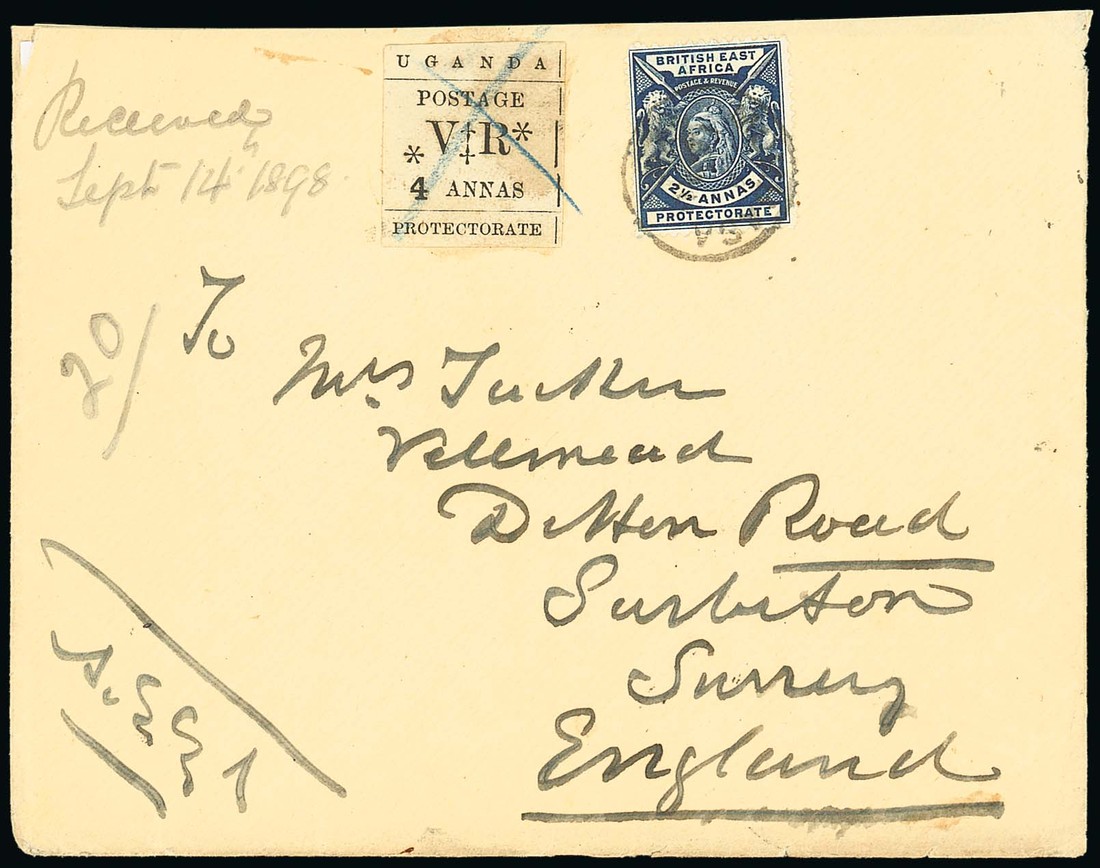 Received
Sept 14th 1898.
UGANDA
POSTAGE
*V‡R*
4 ANNAS
PROTECTORATE
BRITISH EAST
AFRICA
POSTAGE & REVENUE
2½ ANNAS
PROTECTORATE
20/
To
Mrs Tucker
Vellmead
Ditton Road
Surbiton
Surrey
England